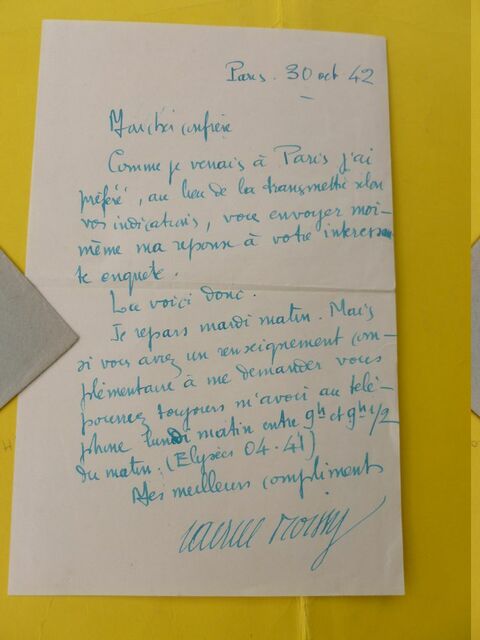 Paris. 30 oct 42
Mon cher confrère
Comme je venais à Paris j'ai
préféré, au lieu de la transmettre selon
vos indications, vous envoyer moi-
même ma reponse à votre interessan
te enquête.
La voici donc.
Je repars mardi matin. Mais
si vous avez un renseignement com-
plémentaire à me demander vous
pourrez toujours m'avoir au télé-
phone lundi matin entre 9h et 9h 1/2
du matin. (Elysées 04.41)
Mes meilleurs compliments